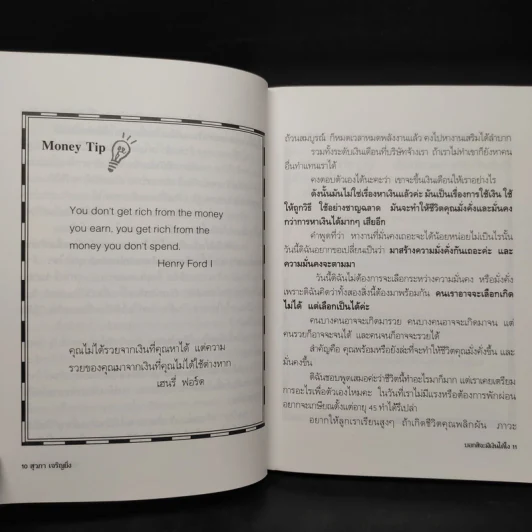 Money Tip
You don't get rich from the money
you earn, you get rich from the
money you don't spend.
Henry Ford I
คุณไม่ได้รวยจากเงินที่คุณหาได้ แต่ความ
รวยของคุณมาจากเงินที่คุณไม่ได้ใช้ต่างหาก
เฮนรี่ ฟอร์ด
10 สุวภา เจริญยิ่ง
ถ้วนสมบูรณ์ ก็หมดเวลาหมดพลังงานแล้ว คงไปหางานเสริมได้ลำบาก
รวมทั้งระดับเงินเดือนที่บริษัทจ้างเรา ถ้าเราไม่ทำเขาก็ยังหาคน
อื่นมาแทนเราได้
คงตอบตัวเองได้นะคะว่า เขาจะขึ้นเงินเดือนให้เราอย่างไร
ดังนั้นมันไม่ใช่เรื่องหาเงินแล้วค่ะ มันเป็นเรื่องการใช้เงิน ใช้
ให้ถูกวิธี ใช้อย่างชาญฉลาด มันจะทำให้ชีวิตคุณมั่งคั่งและมั่นคง
กว่าการหาเงินได้มากๆ เสียอีก
คำพูดที่ว่า หางานที่มั่นคงเถอะจะได้น้อยหน่อยไม่เป็นไรนั้น
วันนี้ดิฉันอยากขอเปลี่ยนเป็นว่า มาสร้างความมั่งคั่งกันเถอะค่ะ และ
ความมั่นคงจะตามมา
วันนี้ดิฉันไม่ต้องการจะเลือกระหว่างความมั่นคง หรือมั่งคั่ง
เพราะดิฉันคิดว่าทั้งสองสิ่งนี้ต้องมาพร้อมกัน คนเราอาจจะเลือกเกิด
ไม่ได้ แต่เลือกเป็นได้ค่ะ
คนบางคนอาจจะเกิดมารวย คนบางคนอาจจะเกิดมาจน แต่
คนรวยก็อาจจะจนได้ และคนจนก็อาจจะรวยได้
สำคัญคือ คุณพร้อมหรือยังล่ะที่จะทำให้ชีวิตคุณมั่งคั่งขึ้น และ
มั่นคงขึ้น
ดิฉันชอบพูดเสมอค่ะว่าชีวิตนี้ทำอะไรมาก็มาก แต่เราเคยเตรียม
การอะไรเพื่อตัวเองไหมคะ ในวันที่เราไม่มีแรงหรือต้องการพักผ่อน
อยากจะเกษียณตั้งแต่อายุ 45 ทำได้รึเปล่า
อยากให้ลูกเราเรียนสูงๆ ถ้าเกิดชีวิตคุณพลิกผัน ภาวะ
11